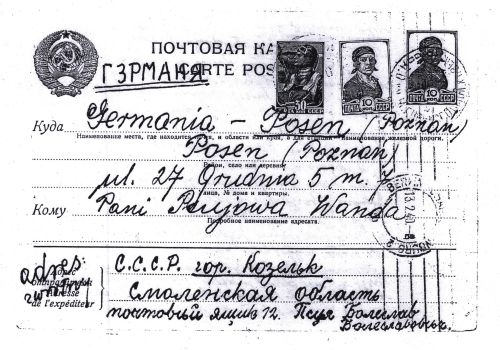 ПОЧТОВАЯ КА
CARTE POS
ГЭРМАНЯ
30
10
10
Куда Germania – Posen (Poznań)
Наименование места, где находится почта, и области или края, а для станции – наименование железной дороги.
Posen (Poznań)
Район, село или деревня
ul. 27 Grudnia 5 m.
Улица, № дома и квартиры.
Кому Pani Wanda
Подробное наименование адресата.
adres:
Адрес
отправителя
Adresse
de l'expéditeur
С.С.С.Р. гор. Козельк
Смоленская область
почтовый ящик 12. Болеслав
Болеславович.